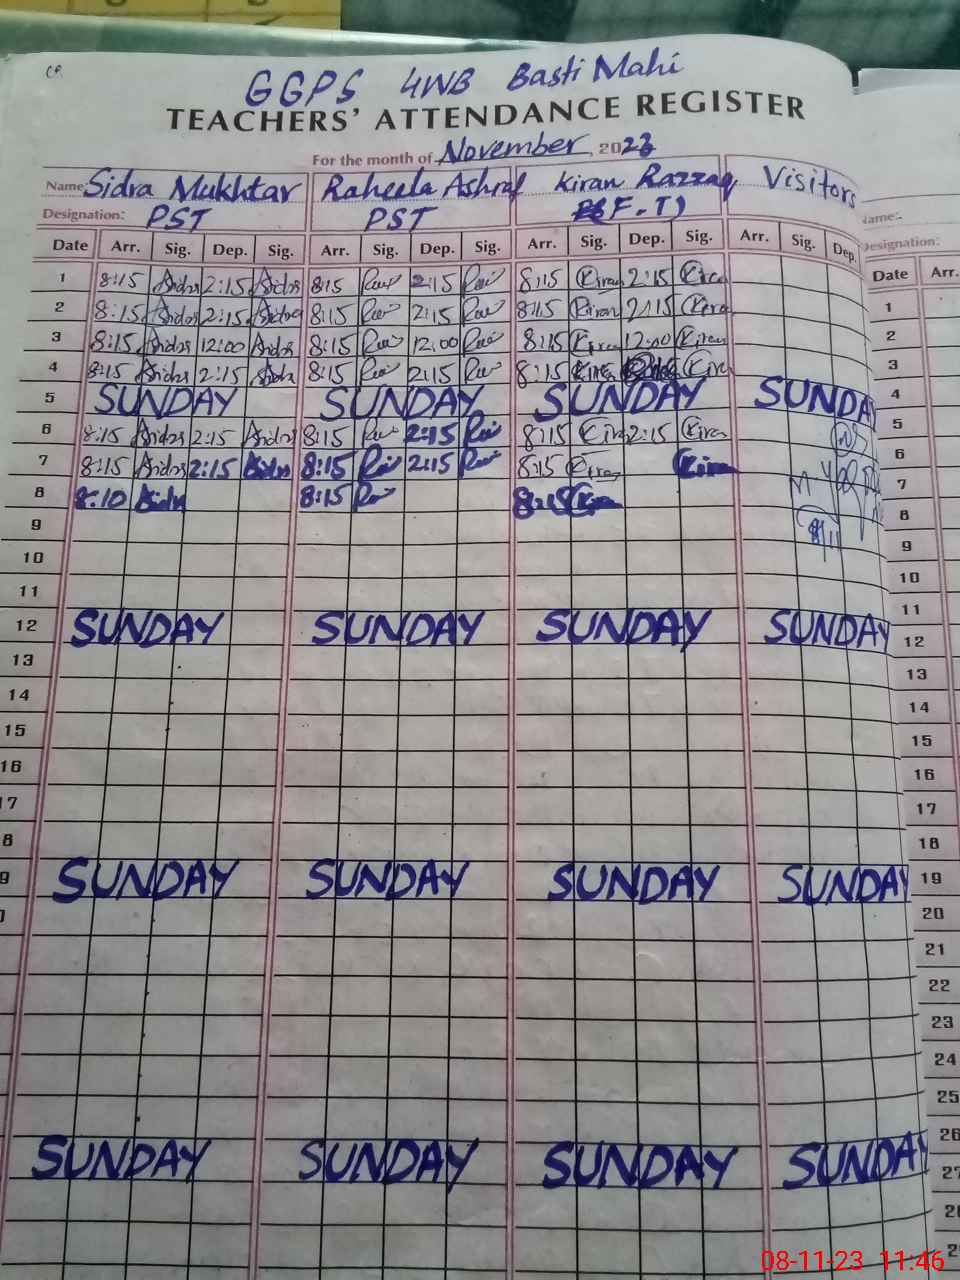 GGPS 4WB Basti Mahi
TEACHERS' ATTENDANCE REGISTER
For the month of November, 2023
Name Sidra Mukhtar Raheela Ashraf Kiran Razzaq Visitors
Designation: PST PST (F.T)
Date Arr. Sig. Dep. Sig. Arr. Sig. Dep. Sig. Arr. Sig. Dep. Sig. Arr. Sig. Dep.
1 8:15 Sidra 2:15 Sidra 8:15 2:15 8:15 Kiran 2:15 Kiran
2 8:15 Sidra 2:15 Sidra 8:15 2:15 8:15 Kiran 2:15 Kiran
3 8:15 Sidra 12:00 Sidra 8:15 12:00 8:15 Kiran 12:00 Kiran
4 8:15 Sidra 2:15 Sidra 8:15 2:15 8:15 Kiran Kiran
5 SUNDAY SUNDAY SUNDAY SUNDAY
6 8:15 Sidra 2:15 Sidra 8:15 2:15 8:15 Kiran 2:15 Kiran
7 8:15 Sidra 2:15 Sidra 8:15 2:15 8:15 Kiran Kiran
8 8:10 Sidra 8:15 8:15 Kiran
8/11
9
10
11
12 SUNDAY SUNDAY SUNDAY SUNDAY
13
14
15
16
17
8
9 SUNDAY SUNDAY SUNDAY SUNDAY
SUNDAY SUNDAY SUNDAY SUNDAY
ame:-
esignation:
Date Arr.
1
2
3
4
5
6
7
8
9
10
11
12
13
14
15
16
17
18
19
20
21
22
23
24
25
26
27
08-11-23 11:46